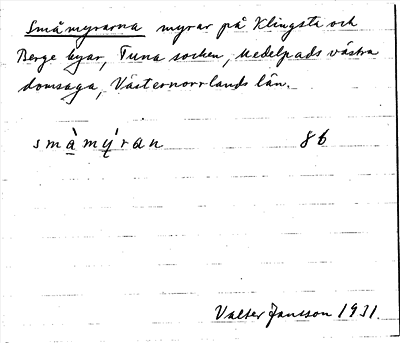 Småmyrarna myrar på Klingsta och
Berge byar, Tuna socken, Medelpads västra
domsaga, Västernorrlands län.
smàmýran 86
Valter Jansson 1931.